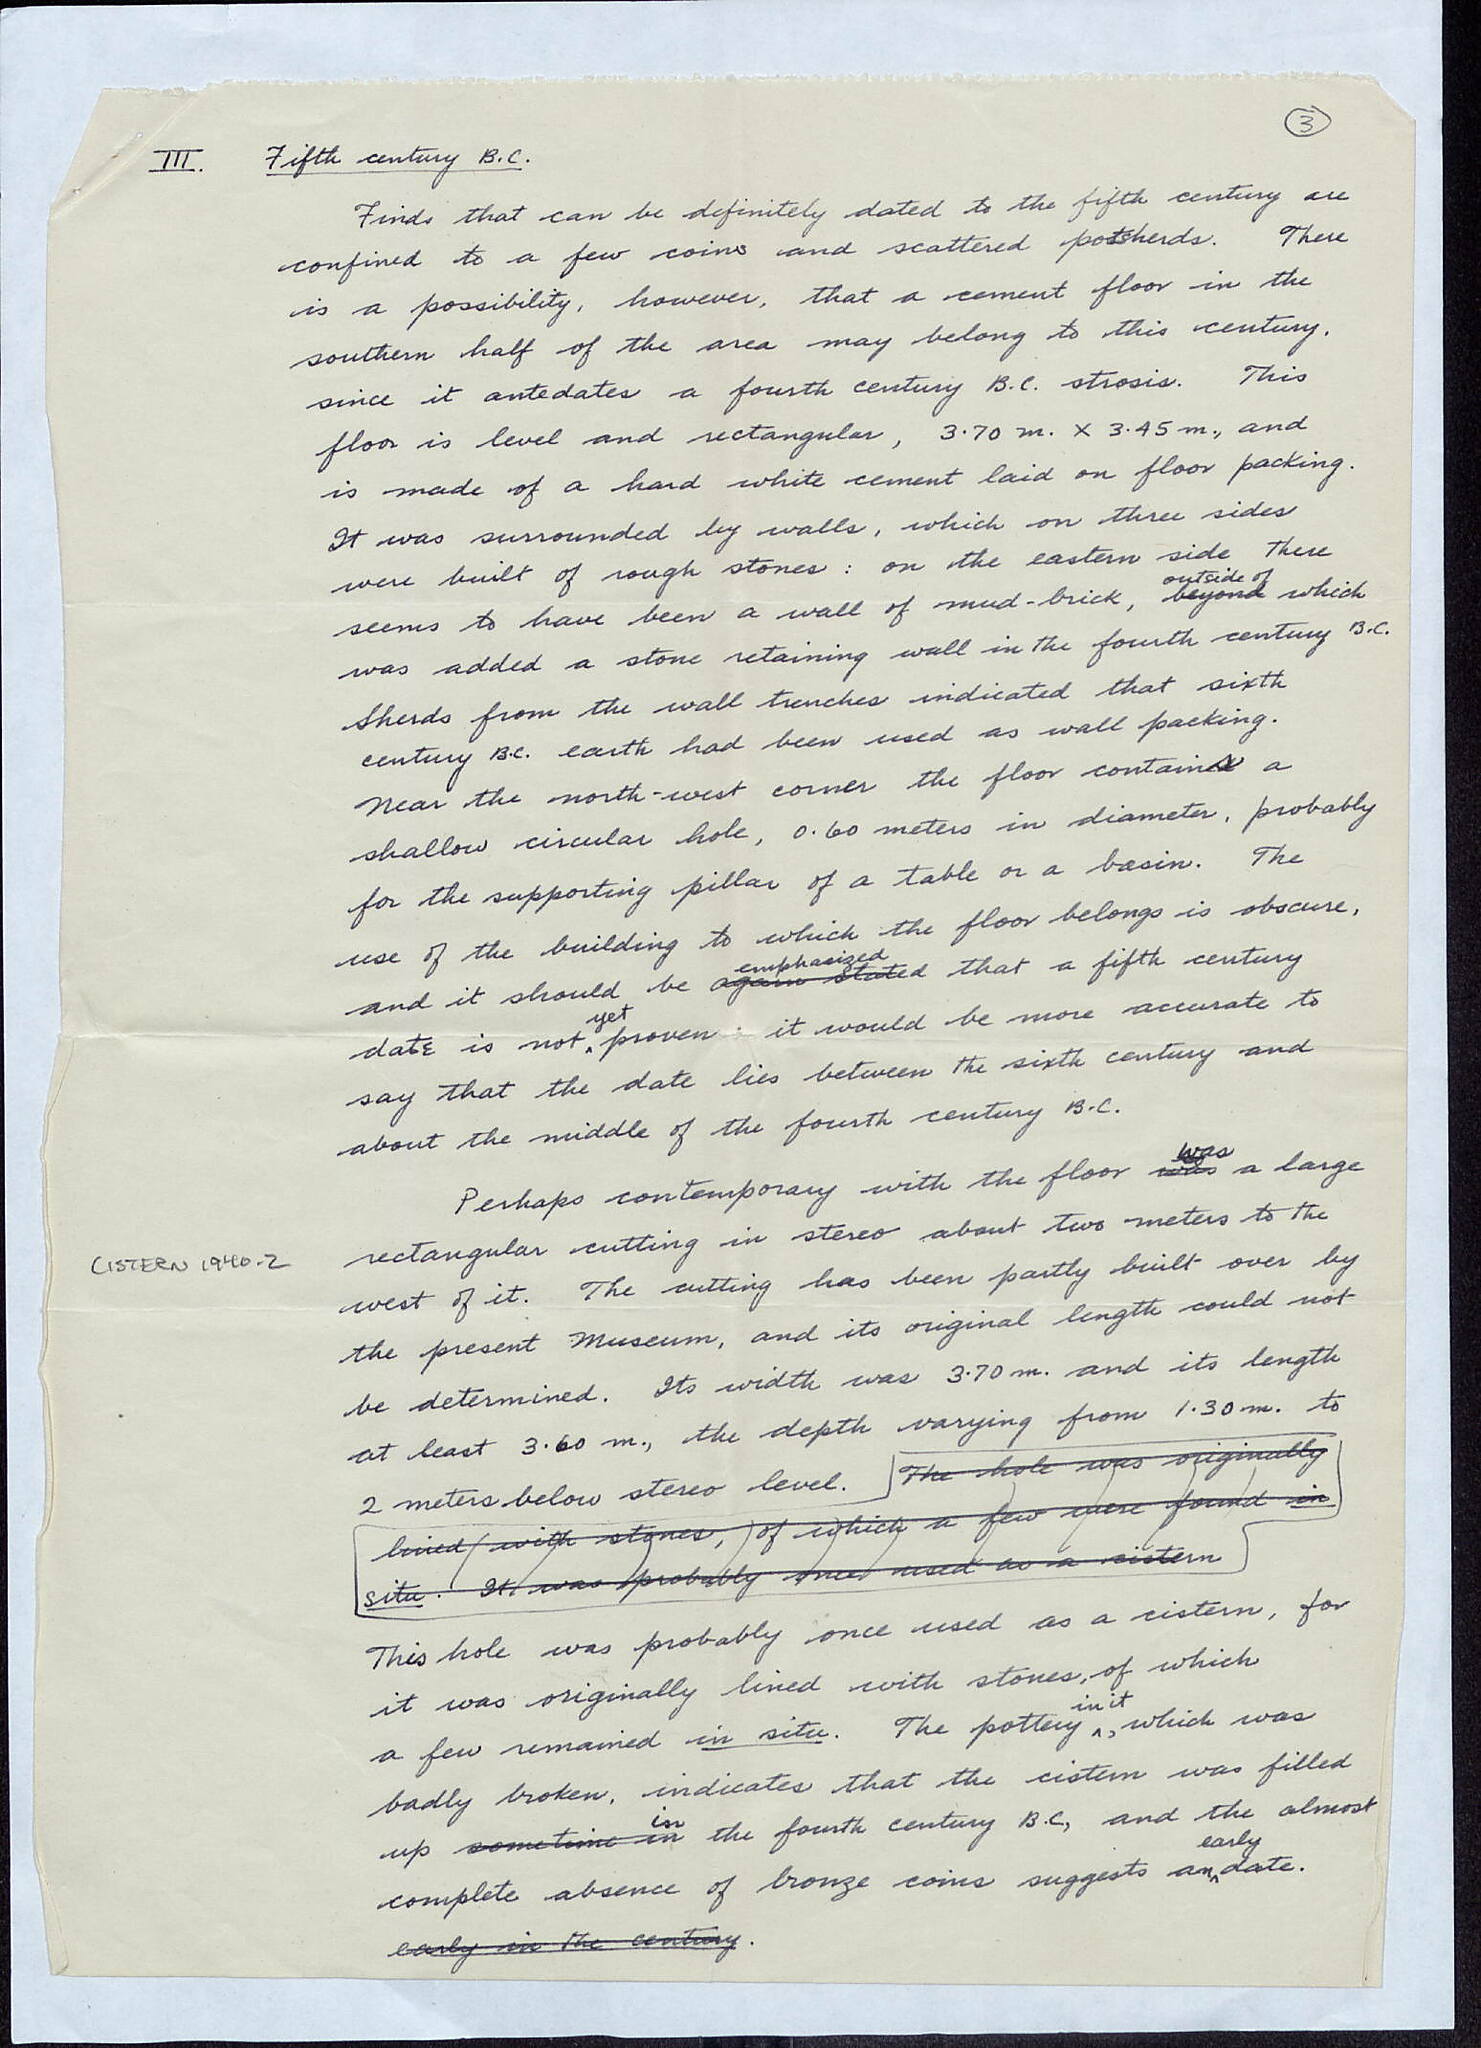 3
III. Fifth century B.C.
Finds that can be definitely dated to the fifth century are
confined to a few coins and scattered potsherds. There
is a possibility, however, that a cement floor in the
southern half of the area may belong to this century,
since it antedates a fourth century B.C. strosis. This
floor is level and rectangular, 3.70 m. X 3.45 m., and
is made of a hard white cement laid on floor packing.
It was surrounded by walls, which on three sides
were built of rough stones: on the eastern side there
outside of
seems to have been a wall of mud-brick, beyond which
was added a stone retaining wall in the fourth century B.C.
Sherds from the wall trenches indicated that sixth
century B.C. earth had been used as wall packing.
Near the north-west corner the floor contains a
shallow circular hole, 0.60 meters in diameter, probably
for the supporting pillar of a table or a basin. The
use of the building to which the floor belongs is obscure,
emphasized
and it should be again stated that a fifth century
yet
date is not ^ proven: it would be more accurate to
say that the date lies between the sixth century and
about the middle of the fourth century B.C.
was
Perhaps contemporary with the floor was a large
rectangular cutting in stereo about two meters to the
CISTERN 1940-2
west of it. The cutting has been partly built over by
the present Museum, and its original length could not
be determined. Its width was 3.70 m. and its length
at least 3.60 m., the depth varying from 1.30 m. to
2 meters below stereo level. The hole was originally
lined with stones, of which a few were found in
situ. It was probably once used as a cistern
This hole was probably once used as a cistern, for
it was originally lined with stones, of which
in it
a few remained in situ. The pottery ^, which was
badly broken, indicates that the cistern was filled
in
up sometime in the fourth century B.C., and the almost
early
complete absence of bronze coins suggests an ^ date.
early in the century.